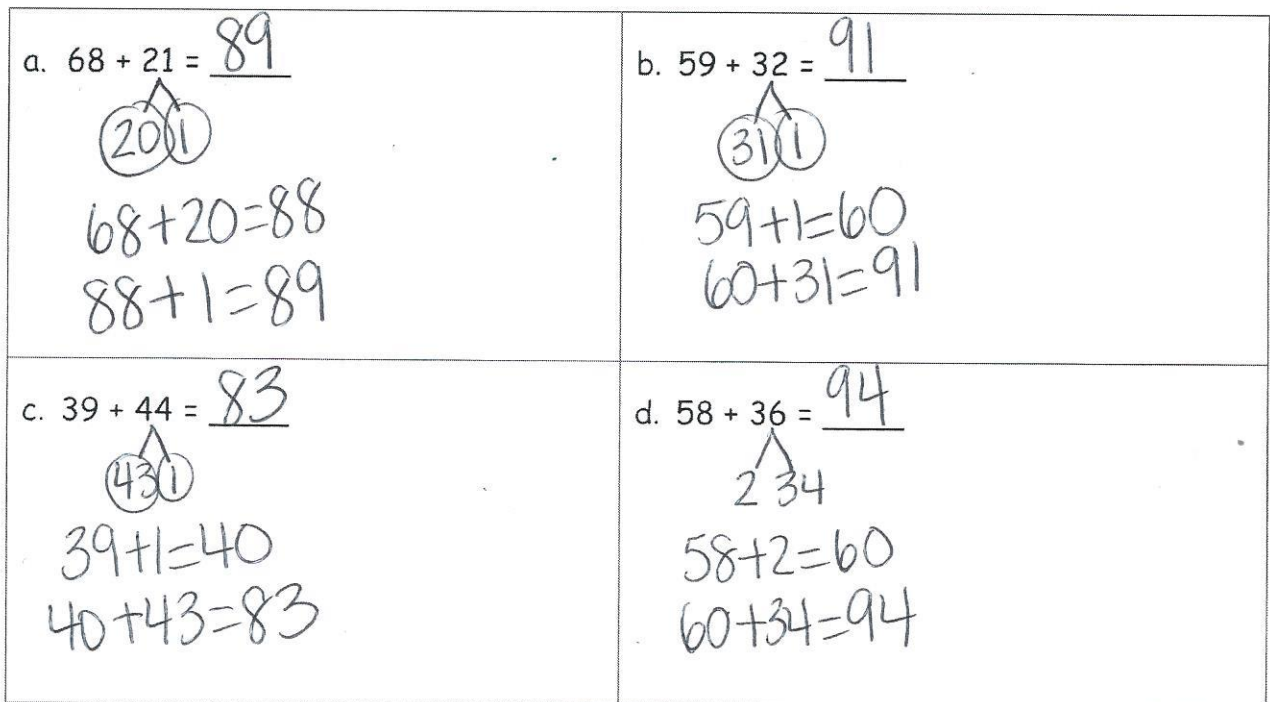 a. 68 + 21 = 89
20 1
68+20=88
88+1=89
b. 59 + 32 = 91
31 1
59+1=60
60+31=91
c. 39 + 44 = 83
43 1
39+1=40
40+43=83
d. 58 + 36 = 94
2 34
58+2=60
60+34=94